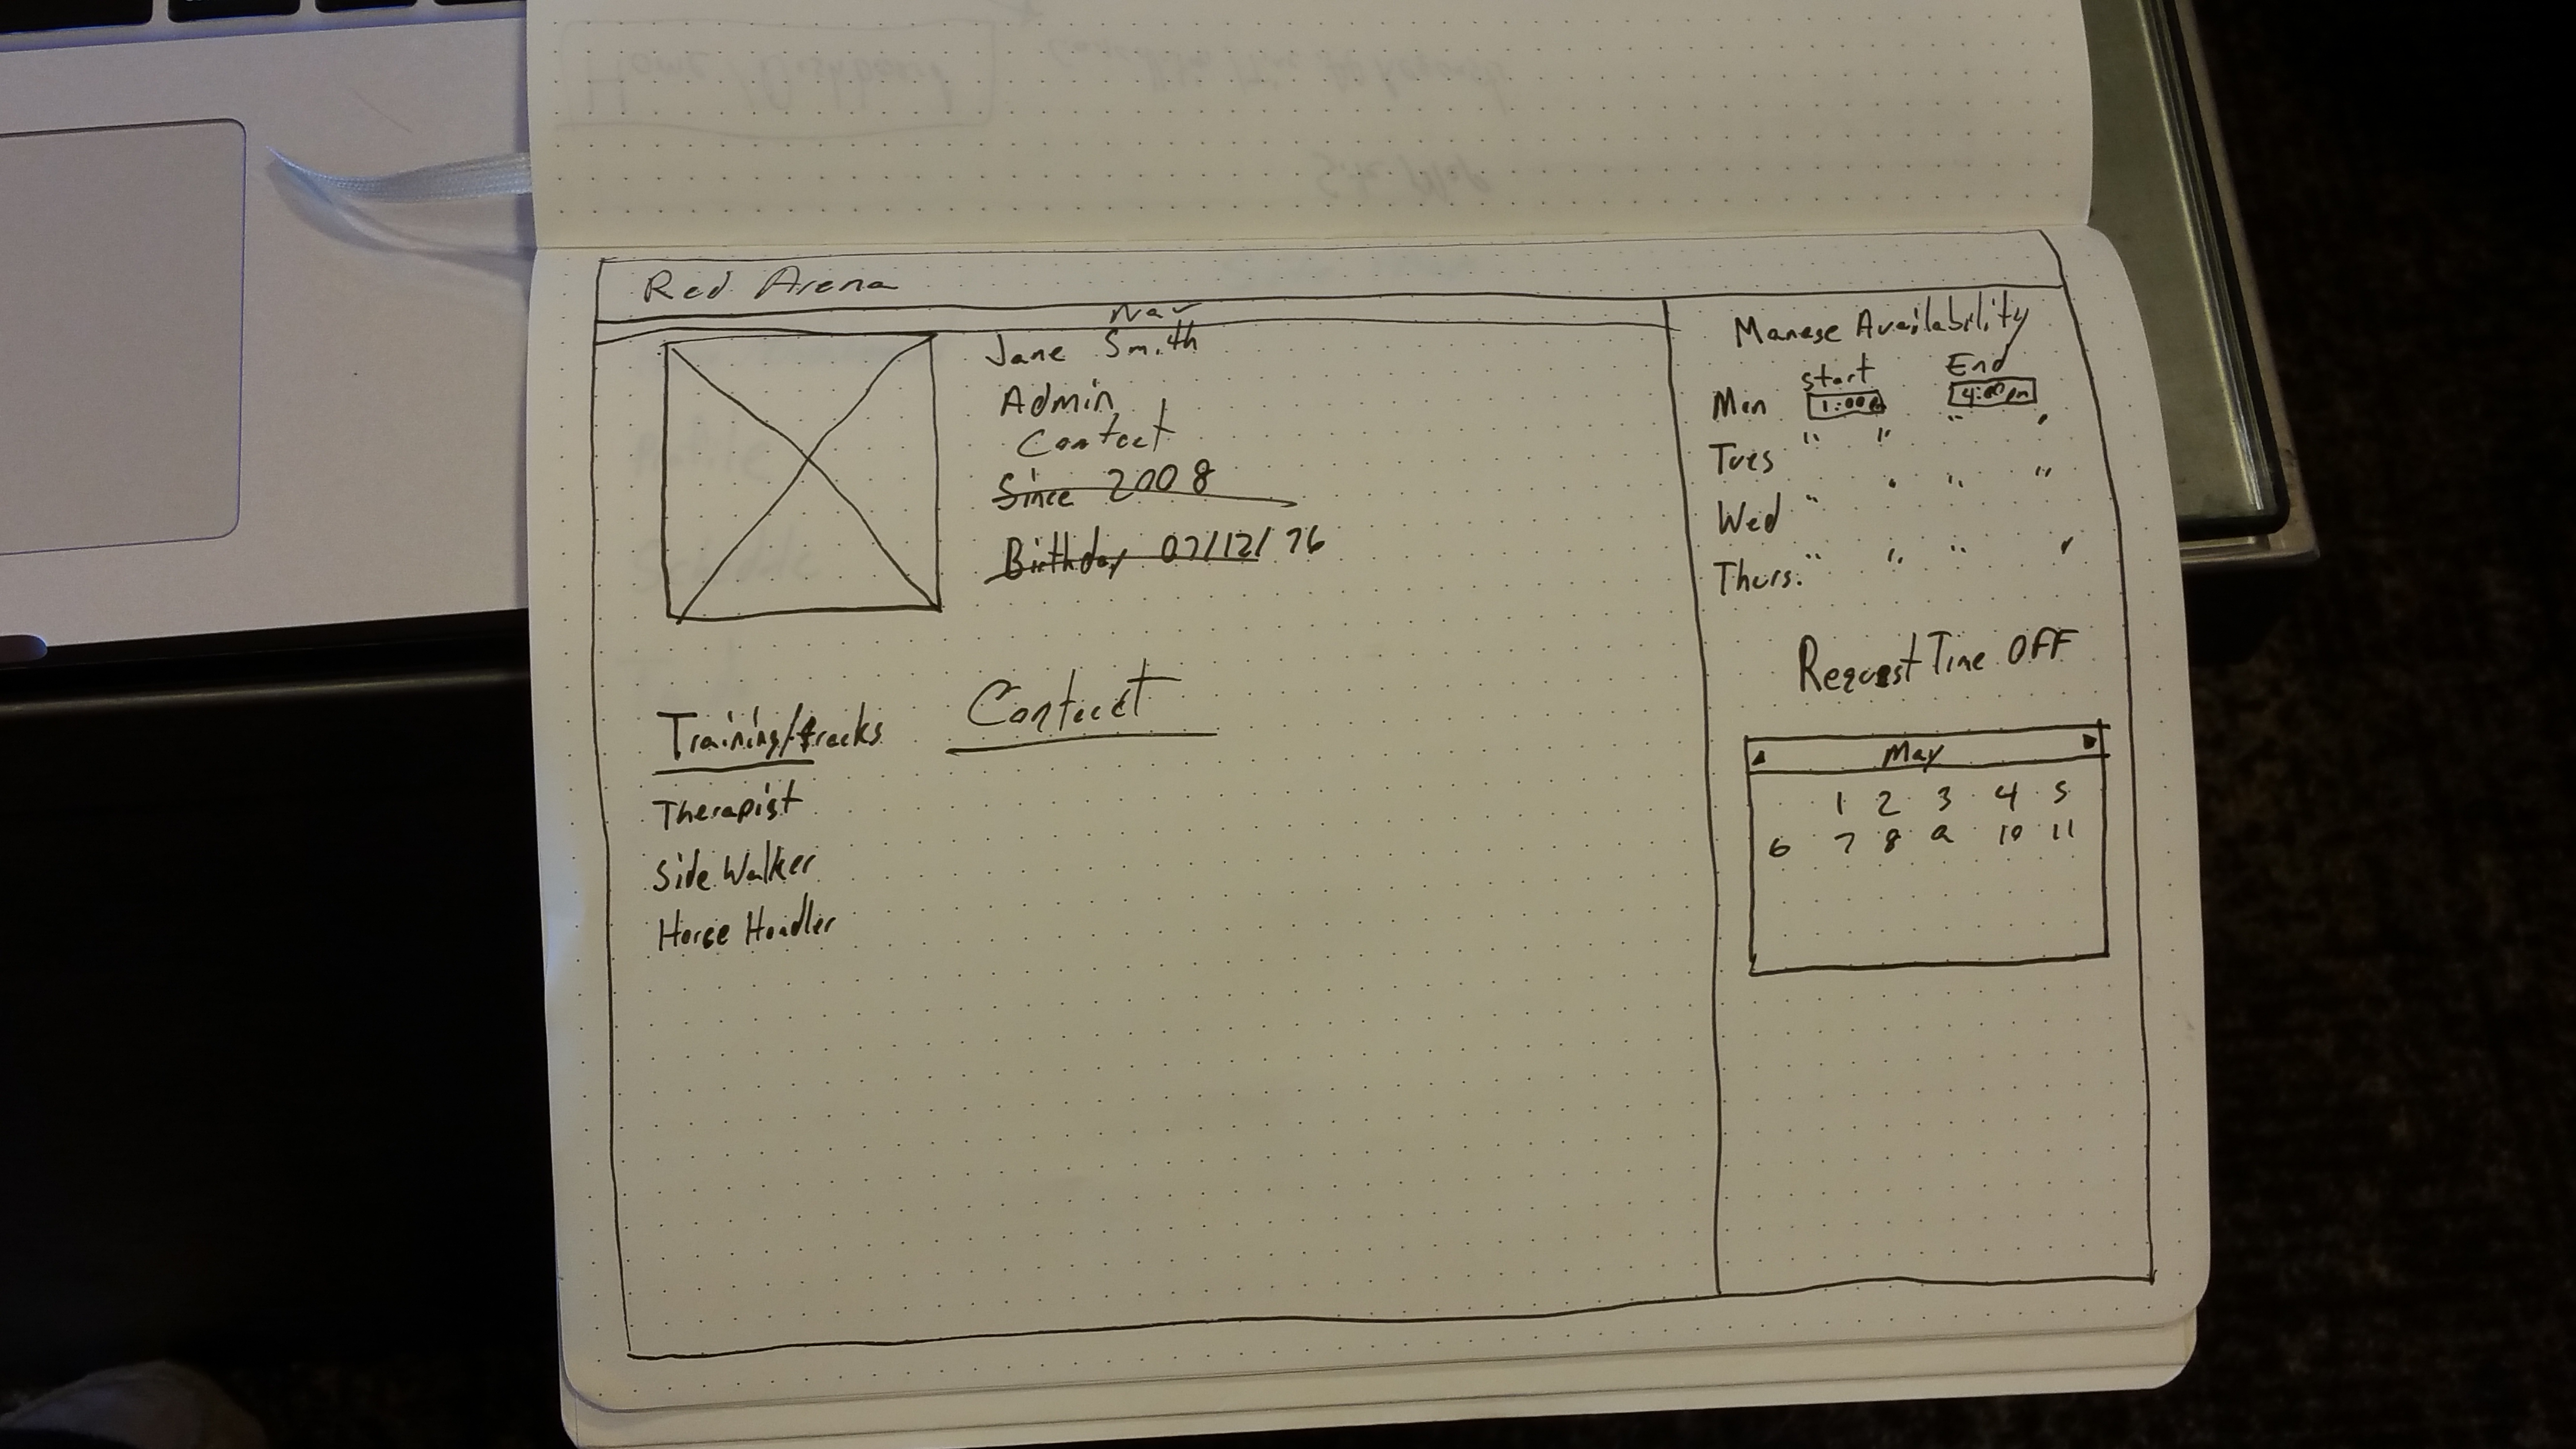 Red Arena
Nav
Jane Smith
Admin
Contact
Since 2008
Birthday 07/12/76
Training/tracks
Therapist
Side Walker
Horse Handler
Contact
Manage Availability
Start End
Mon 1:00pm 4:00pm
Tues " " " "
Wed " " " "
Thurs. " " " "
Request Time OFF
May
1 2 3 4 5
6 7 8 9 10 11